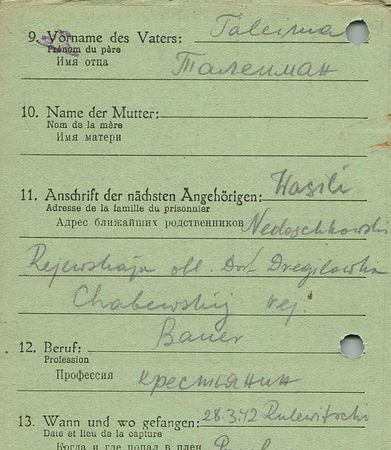 9. Vorname des Vaters: Taleima
Prénom du père
Имя отца Талейман
10. Name der Mutter:
Nom de la mère
Имя матери
11. Anschrift der nächsten Angehörigen: Wasili
Adresse de la famille du prisonnier
Адрес ближайших родственников Nedoschkowski
Rejewskaja obl. Dorf Dregilowka
Chabewskij rej.
Bauer
12. Beruf:
Profession
Профессия крестьянин
13. Wann und wo gefangen: 28.3.42 Rulewitschi
Date et lieu de la capture
Когда и где попал в плен